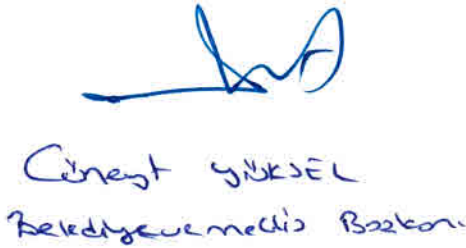 Cüneyt YÜKSEL
Belediye ve meclis Başkanı